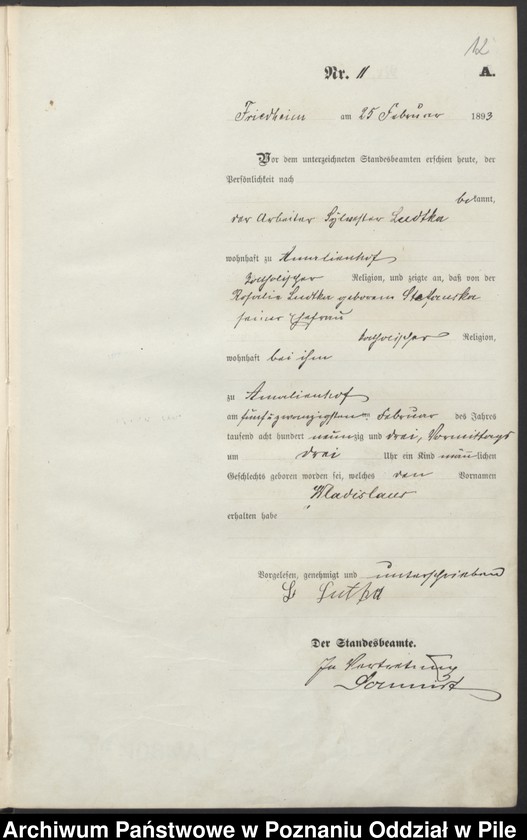 12
Nr. 11 A.
Friedheim am 25 Februar 1893
Vor dem unterzeichneten Standesbeamten erschien heute, der
Persönlichkeit nach
bekannt,
der Arbeiter Sylvester Ludtka
wohnhaft zu Amalienhof
katholischer Religion, und zeigte an, daß von der
Rosalie Ludtka geborenen
seiner Ehefrau
katholischer Religion,
wohnhaft bei ihm
zu Amalienhof
am fünfundzwanzigsten Februar des Jahres
tausend acht hundert neunzig und drei, Vormittags
um drei Uhr ein Kind männlichen
Geschlechts geboren worden sei, welches den Vornamen
Wladislaus
erhalten habe
Vorgelesen, genehmigt und unterschrieben
Der Standesbeamte.
In Vertretung
Archiwum Państwowe w Poznaniu Oddział w Pile